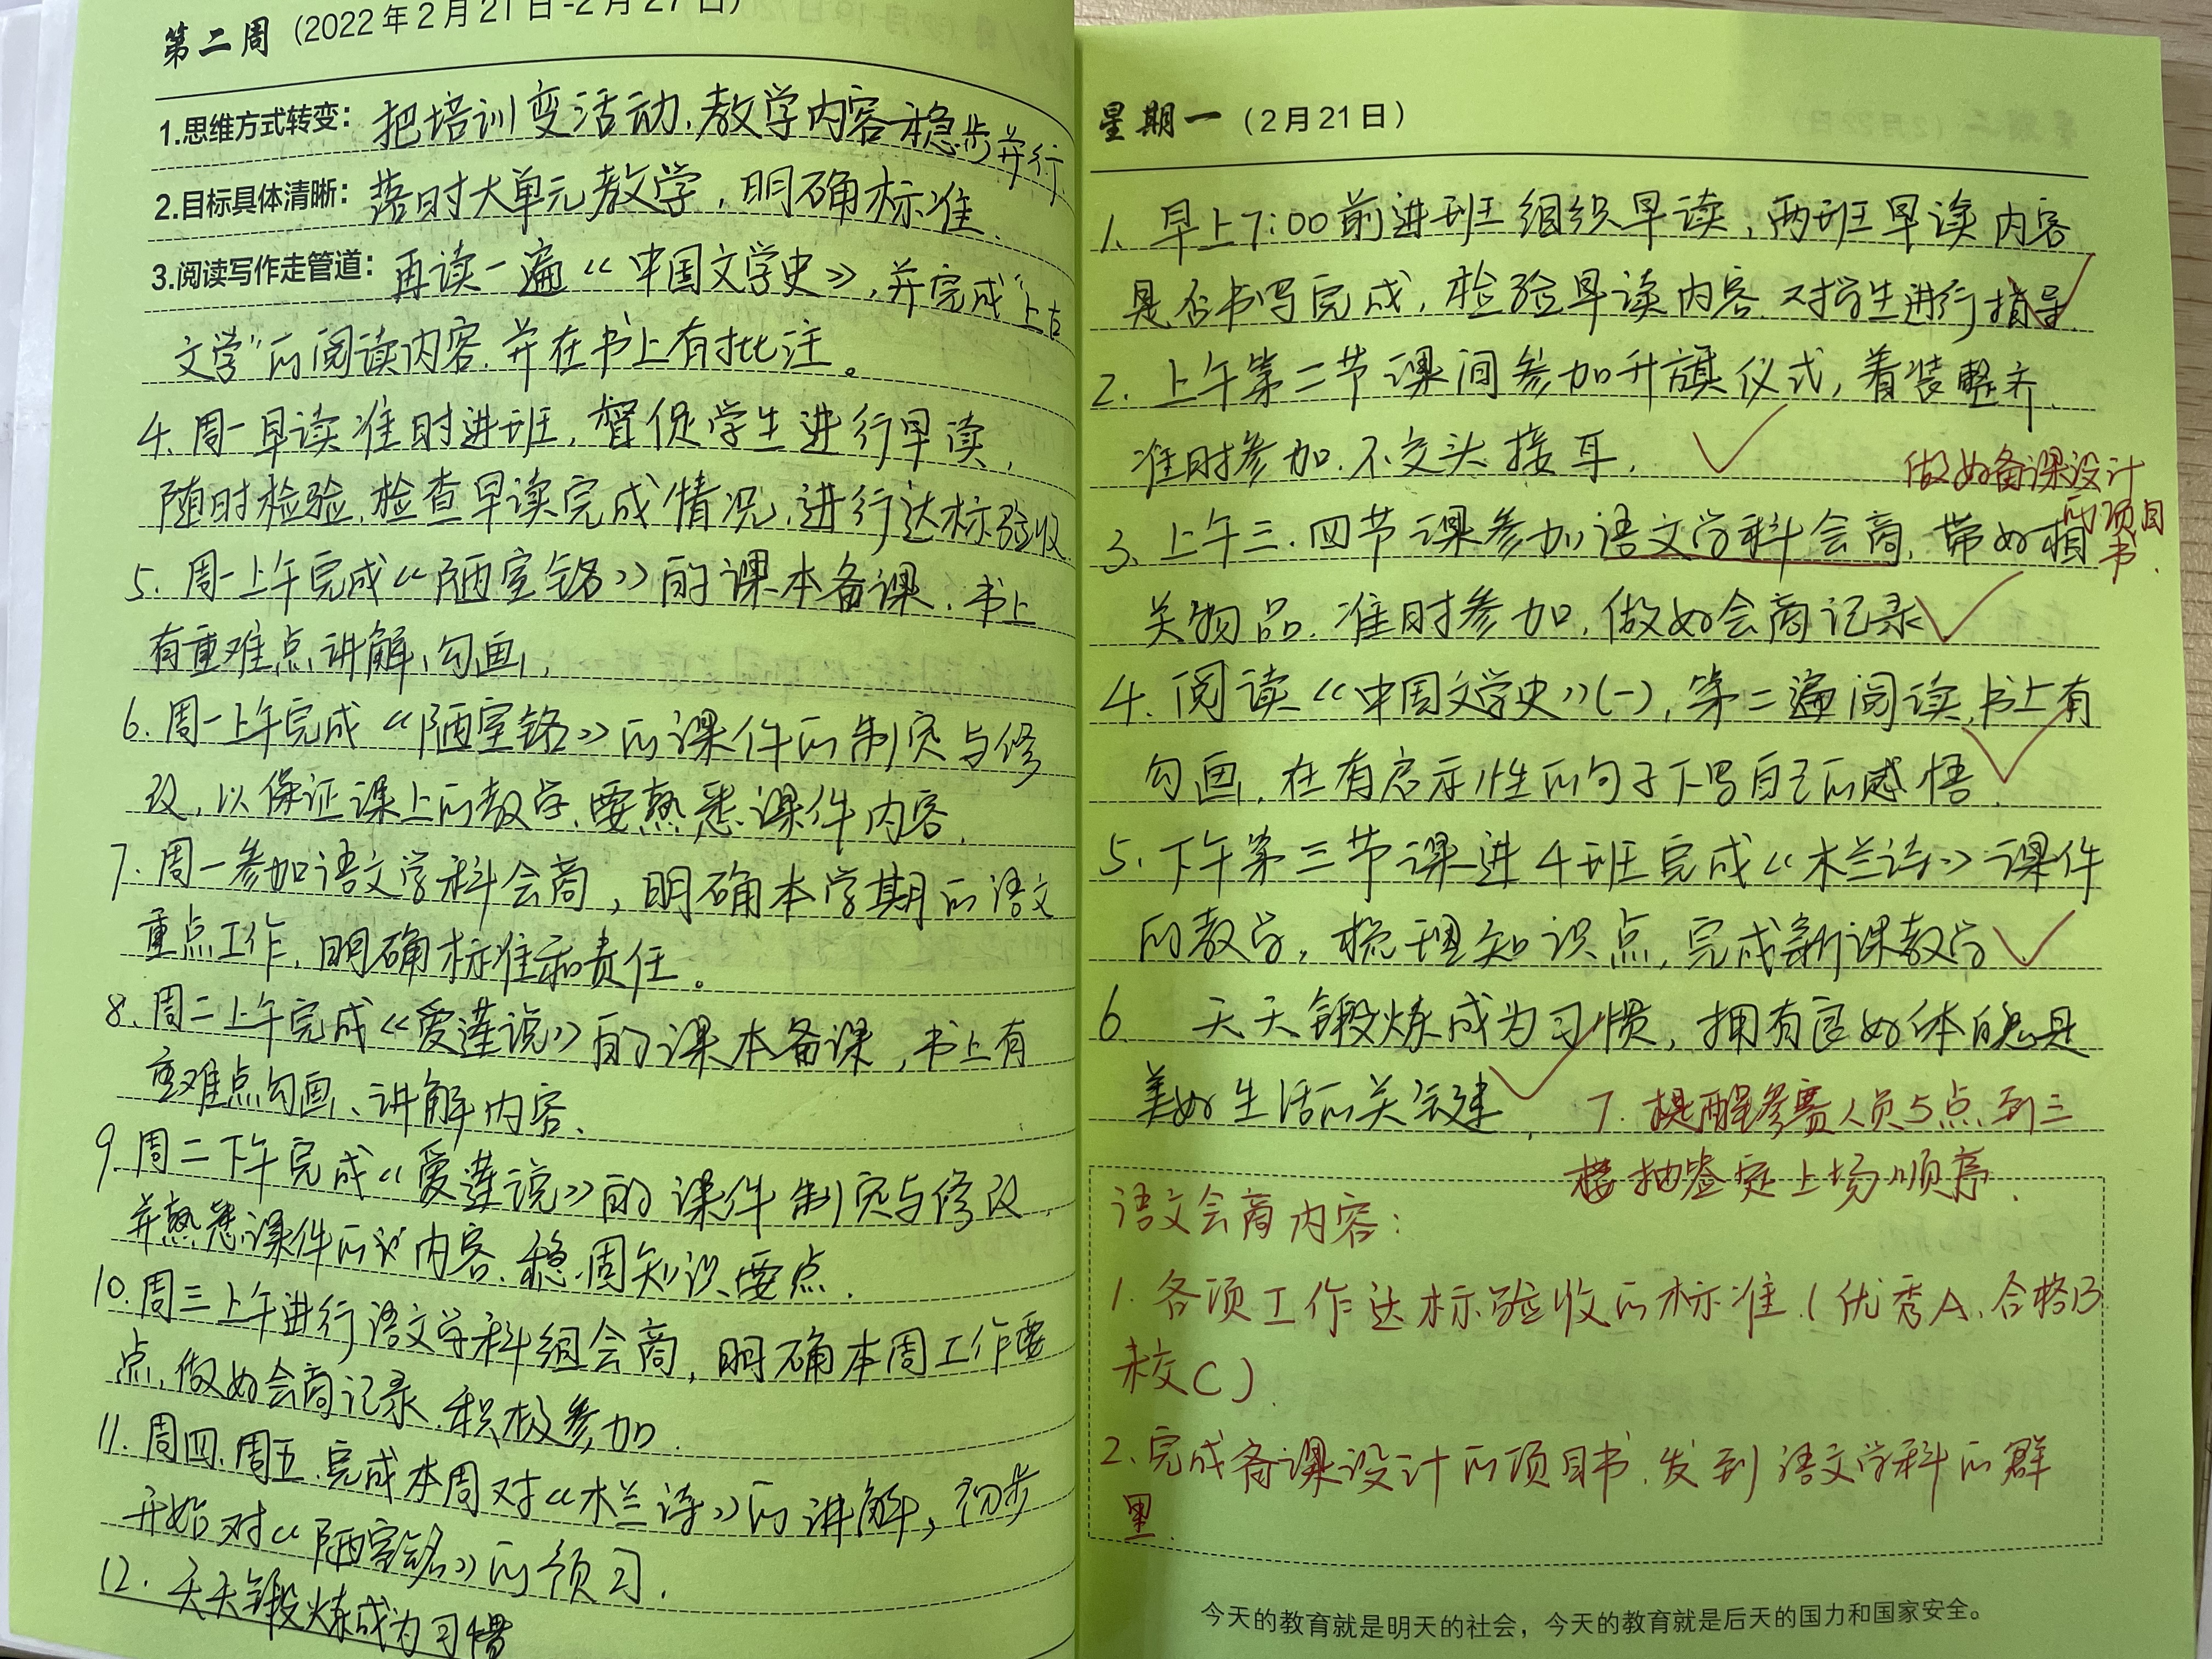 第二周（2022年2月21日-2月27日）
1.思维方式转变：把培训变活动，教学内容稳步并行.
2.目标具体清晰：落时大单元教学，明确标准.
3.阅读写作走管道：再读一遍《中国文学史》，并完成“上古
文学”的阅读内容.并在书上有批注。
4.周一早读准时进班，督促学生进行早读，
随时检验.检查早读完成情况，进行达标验收.
5.周一上午完成《陋室铭》的课本备课.书上
有重难点讲解、勾画，
6.周一上午完成《陋室铭》的课件的制定与修
改，以保证课上的教学.要熟悉课件内容.
7.周一参加语文学科会商，明确本学期的语文
重点工作，明确标准和责任。
8.周二上午完成《爱莲说》的课本备课，书上有
重难点勾画、讲解内容.
9.周二下午完成《爱莲说》的课件制定与修改，
并熟悉课件的内容.稳固知识要点.
10.周三上午进行语文学科组会商，明确本周工作要
点.做好会商记录.积极参加.
11.周四.周五.完成本周对《木兰诗》的讲解，初步
开始对《陋室铭》的预习.
12.天天锻炼成为习惯
星期一（2月21日）
1.早上7:00前进班组织早读，两班早读内容
是否书写完成，检验早读内容.对学生进行指导.
2.上午第二节课间参加升旗仪式，着装整齐.
准时参加.不交头接耳.
做好备课设计
的项目
书.
3.上午三.四节课参加语文学科会商.带好相
关物品.准时参加.做好会商记录
4.阅读《中国文学史》(一)，第二遍阅读.书上有
勾画.在有启示性的句子下写自己的感悟.
5.下午第三节课进4班完成《木兰诗》课件
的教学，梳理知识点，完成新课教学.
6.天天锻炼成为习惯，拥有良好体魄是
美好生活的关键.
7.提醒参赛人员5点到三
楼抽签定上场顺序.
语文会商内容：
1.各项工作达标验收的标准.(优秀A.合格B
未交C).
2.完成备课设计的项目书.发到语文学科的群
里.
今天的教育就是明天的社会，今天的教育就是后天的国力和国家安全。